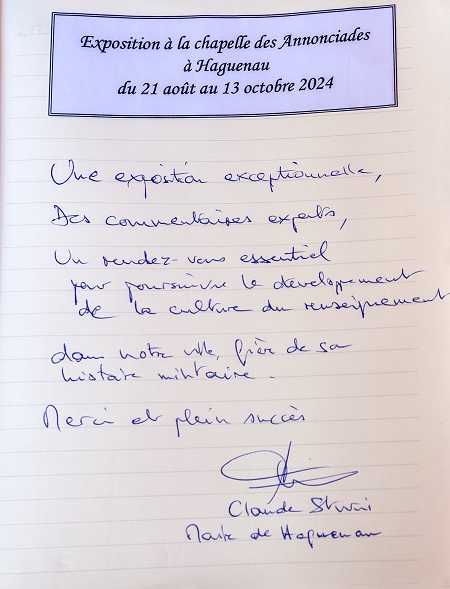 Exposition à la chapelle des Annonciades
à Haguenau
du 21 août au 13 octobre 2024
Une exposition exceptionnelle,
Des commentaires experts,
Un rendez-vous essentiel
pour poursuivre le développement
de la culture du renseignement
dans notre ville, fière de son
histoire militaire.
Merci et plein succès
Claude Sturni
Maire de Haguenau